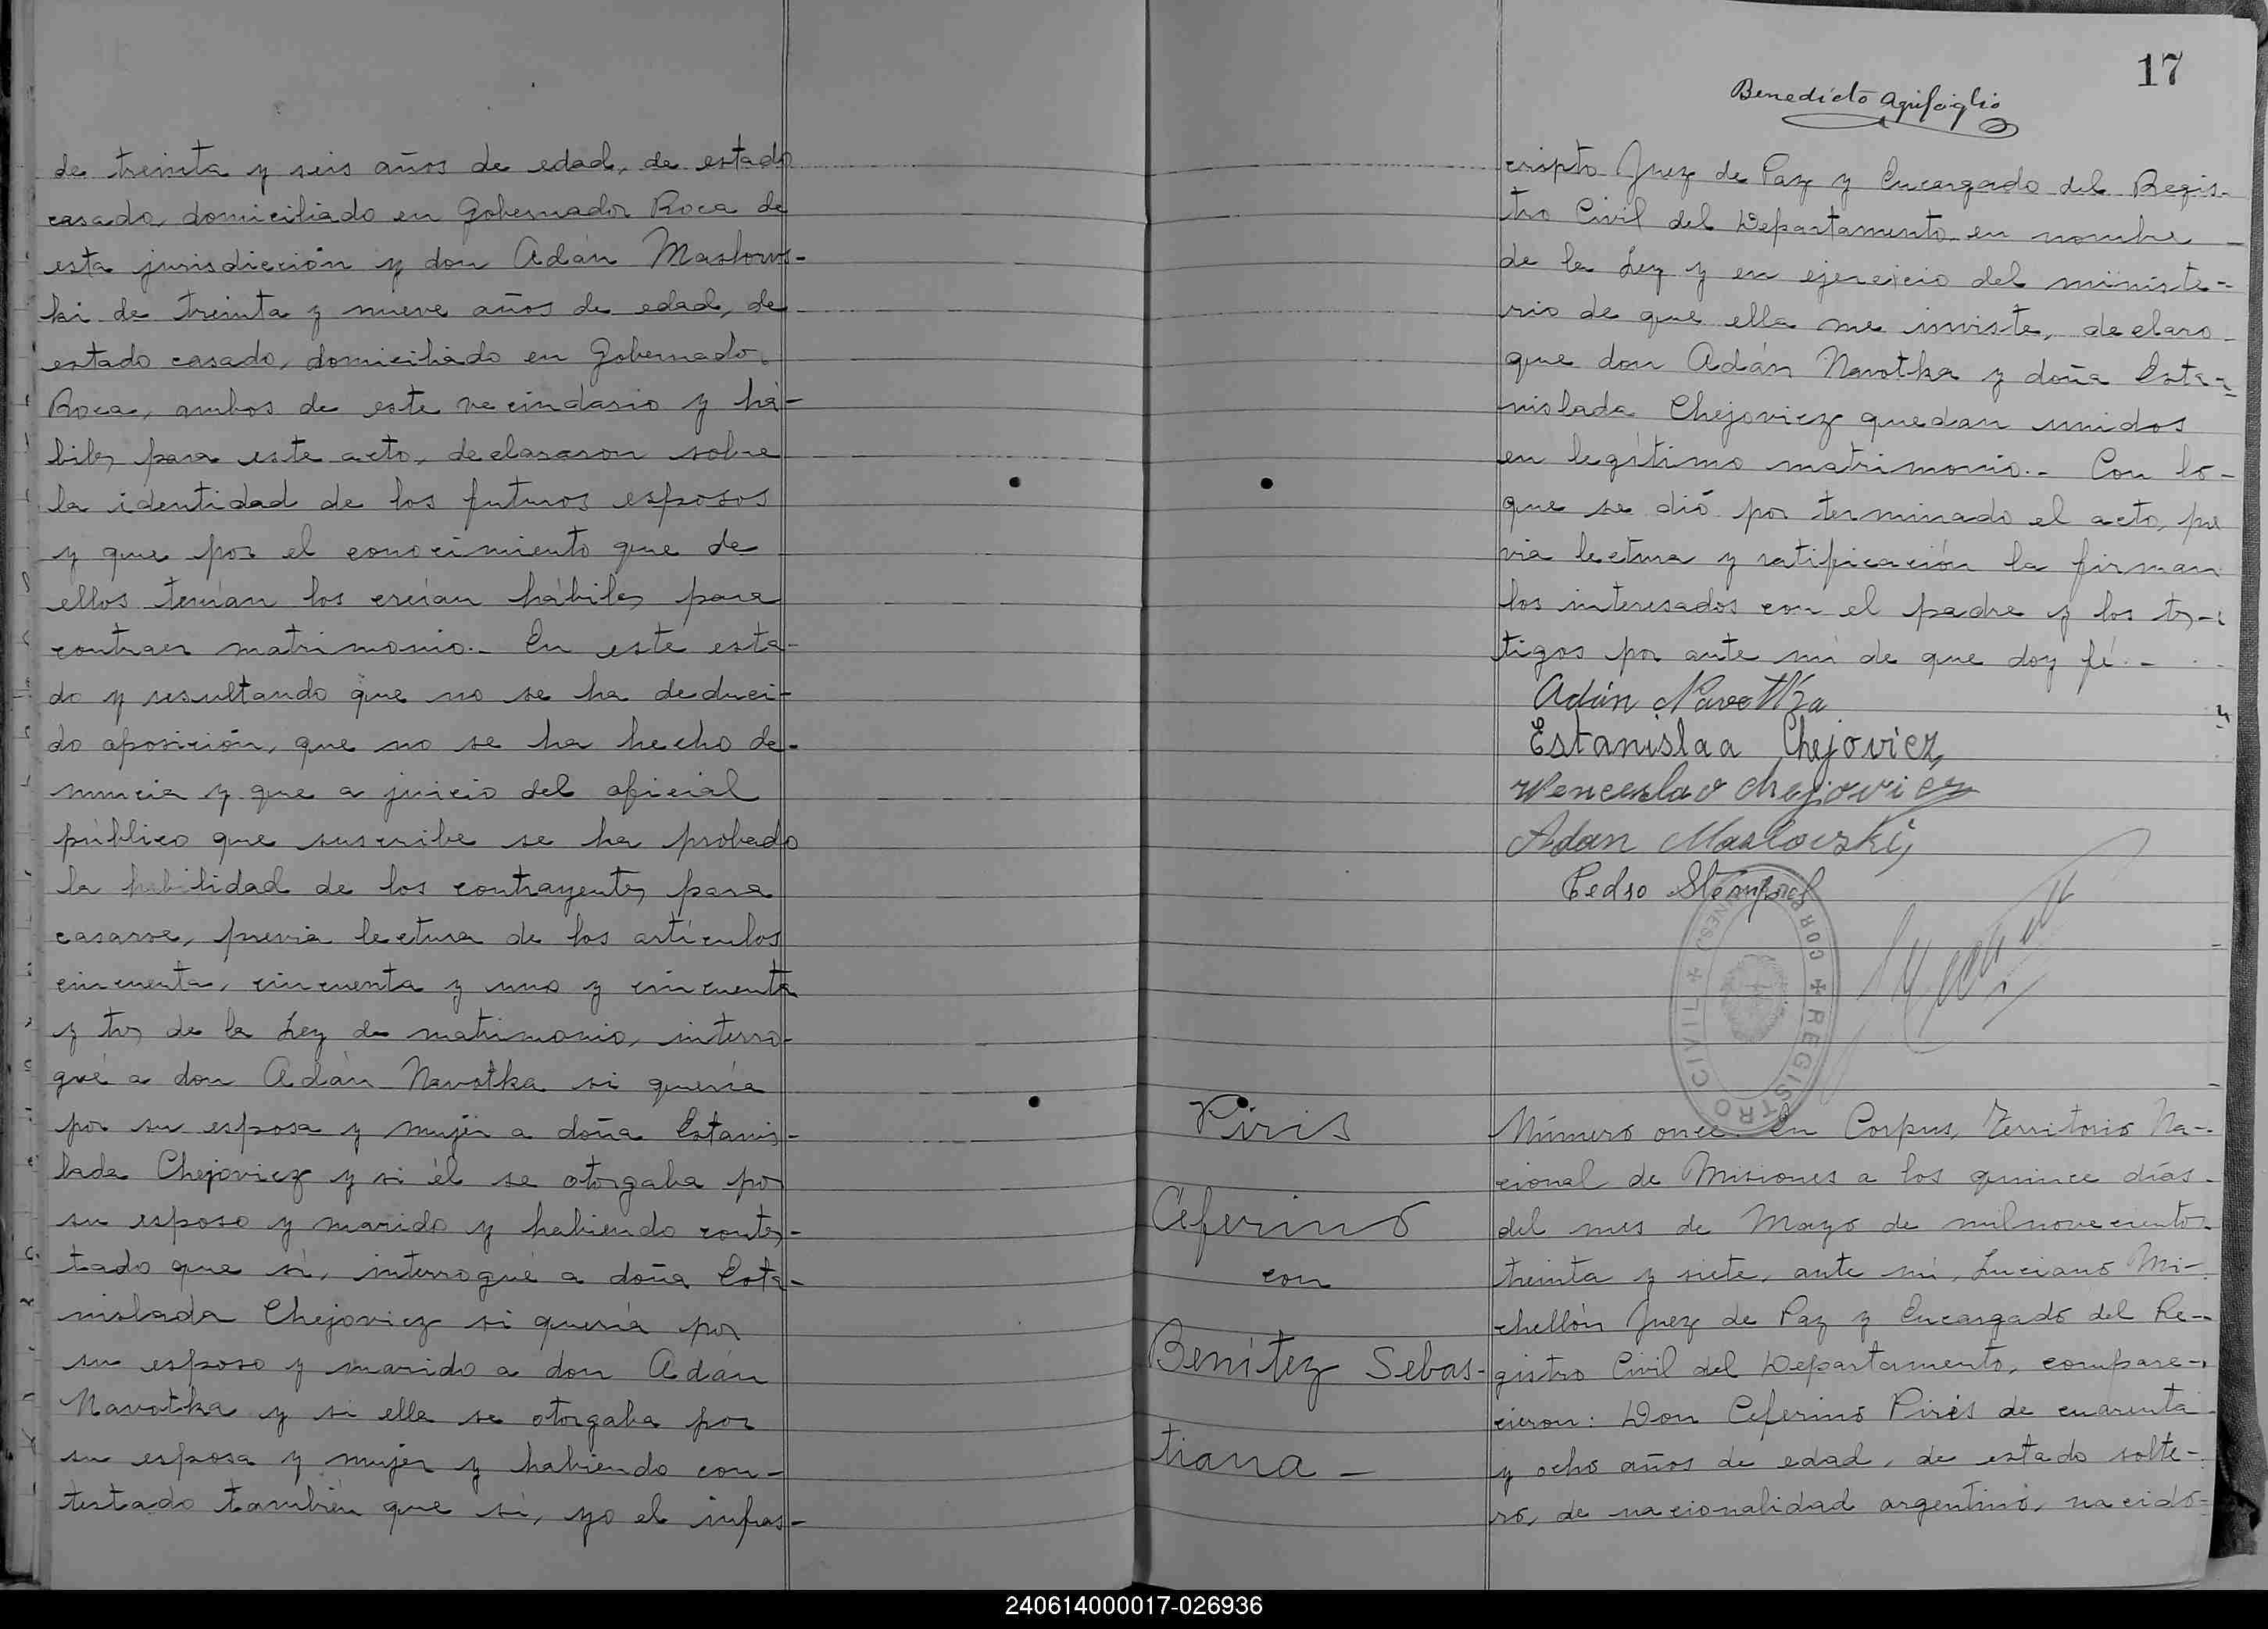 de treinta y seis años de edad, de estado
casado, domiciliado en Gobernador Roca de
esta jurisdicción y don Adán Maslows-
ki de treinta y nueve años de edad, de
estado casado, domiciliado en Gobernador
Roca, ambos de este vecindario y há-
biles para este acto, declararon sobre
la identidad de los futuros esposos
y que por el conocimiento que de
ellos tenían los creían hábiles para
contraer matrimonio.- En este esta-
do y resultando que no se ha deduci-
do oposición, que no se ha hecho de-
nuncia y que a juicio del oficial
público que suscribe se ha probado
la habilidad de los contrayentes para
casarse, previa lectura de los artículos
cincuenta, cincuenta y uno y cincuenta
y tres de la Ley de matrimonio, interro-
gué a don Adán Navotka si quería
por su esposa y mujer a doña Estanis-
lada Chejovicz y si él se otorgaba por
su esposo y marido y habiendo contes-
tado que sí, interrogué a doña Esta-
nislada Chejovicz si quería por
su esposo y marido a don Adán
Navotka y si ella se otorgaba por
su esposa y mujer y habiendo con-
testado también que sí, yo el infras-
17
Benedicto Aquifoglio
cripto Juez de Paz y Encargado del Regis-
tro Civil del Departamento en nombre
de la Ley y en ejercicio del ministe-
rio de que ella me inviste, declaro
que don Adán Navotka y doña Esta-
nislada Chejovicz quedan unidos
en legítimo matrimonio.- Con lo-
que se dió por terminado el acto, pre
via lectura y ratificación la firman
los interesados con el padre y los tes-
tigos por ante mí de que doy fé.-
Adán Navotka
Estanislaa Chejovicz
Wenceslao Chejovicz
Adan Masloeski
Pedro Stempnel
REGISTRO CIVIL
Piris
Ceferino
con
Benítez Sebas-
tiana -
Número once. En Corpus, Territorio Na-
cional de Misiones a los quince días
del mes de Mayo de mil novecientos
treinta y siete, ante mí, Luciano Mi-
chellón Juez de Paz y Encargado del Re-
gistro Civil del Departamento, compare-
cieron: Don Ceferino Piris de cuarenta
y ocho años de edad, de estado solte-
ro, de nacionalidad argentino, nacido
240614000017-026936